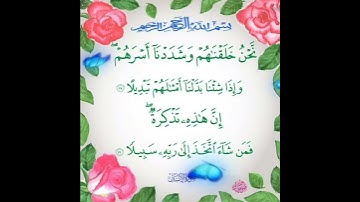 بِسْمِ اللَّهِ الرَّحْمَٰنِ الرَّحِيمِ
نَّحْنُ خَلَقْنَٰهُمْ وَشَدَدْنَآ أَسْرَهُمْ ۖ
وَإِذَا شِئْنَا بَدَّلْنَآ أَمْثَٰلَهُمْ تَبْدِيلًا ٢٨
إِنَّ هَٰذِهِۦ تَذْكِرَةٌ ۖ
فَمَن شَآءَ ٱتَّخَذَ إِلَىٰ رَبِّهِۦ سَبِيلًا ٢٩